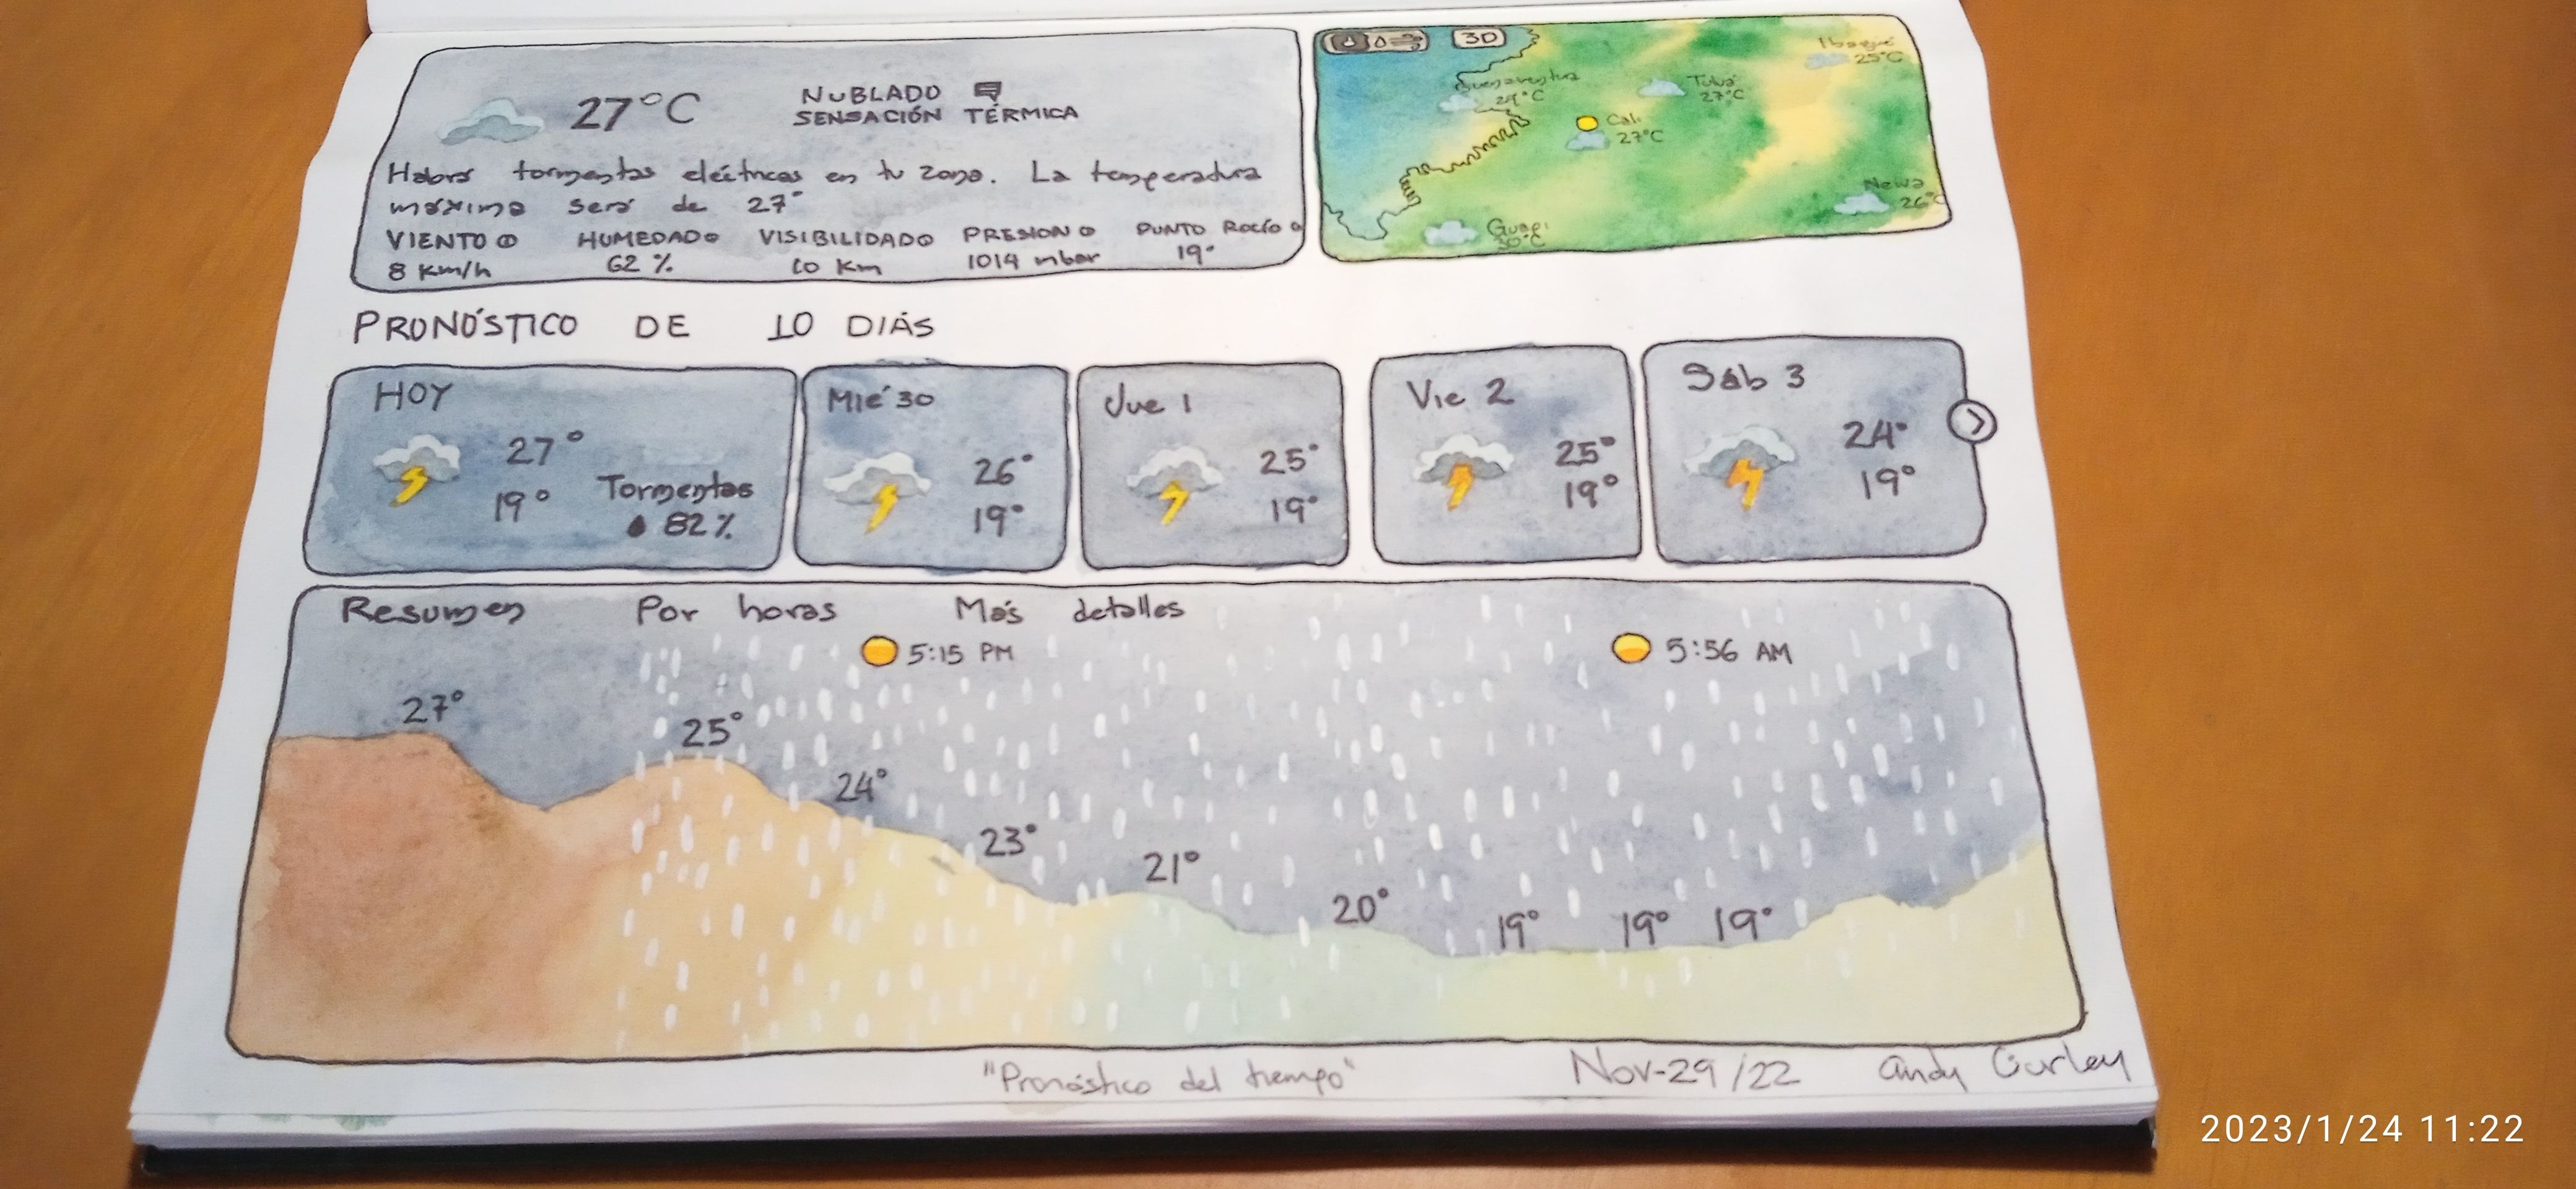 27°C
NUBLADO
SENSACIÓN TÉRMICA
Habrá tormentas eléctricas en tu zona. La temperatura
máxima será de 27°
VIENTO HUMEDAD VISIBILIDAD PRESION PUNTO ROCÍO
8 Km/h 62% 10 Km 1014 mbar 19°
3D
Ibagué
25°C
Buenaventura
29°C
Tuluá
27°C
Cali
27°C
Neiva
26°C
Guapi
30°C
PRONÓSTICO DE 10 DIÁS
HOY
27°
19°
Tormentas
82%
Mié 30
26°
19°
Jue 1
25°
19°
Vie 2
25°
19°
Sáb 3
24°
19°
Resumen Por horas Más detalles
5:15 PM
5:56 AM
27°
25°
24°
23°
21°
20°
19°
19°
19°
"Pronóstico del tiempo"
Nov-29/22
2023/1/24 11:22